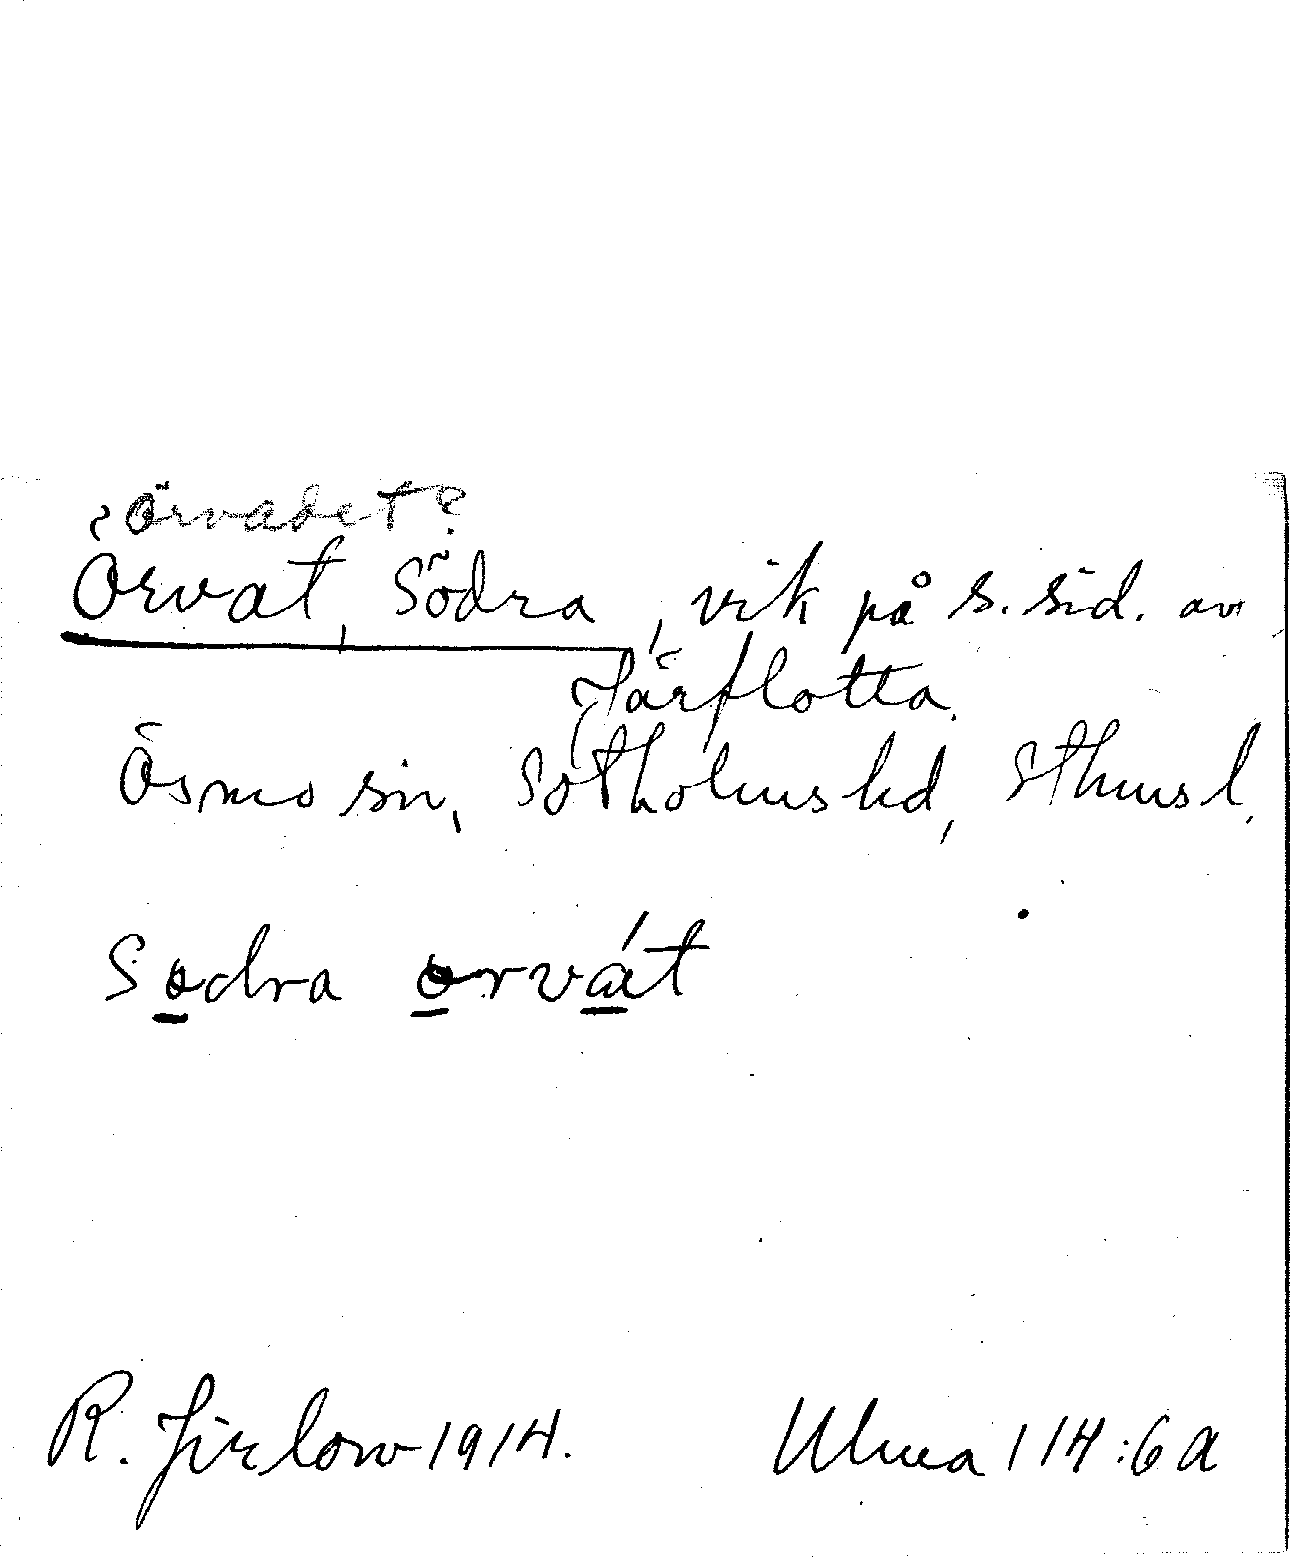 ? Örvadet?
Orvat, Södra, vik på s. sid. av
Järflotta.
Ösmo sn, Sotholms hd, Sthms l.
Sodra orvát
R. Jirlow 1914. Ulma 114:6a